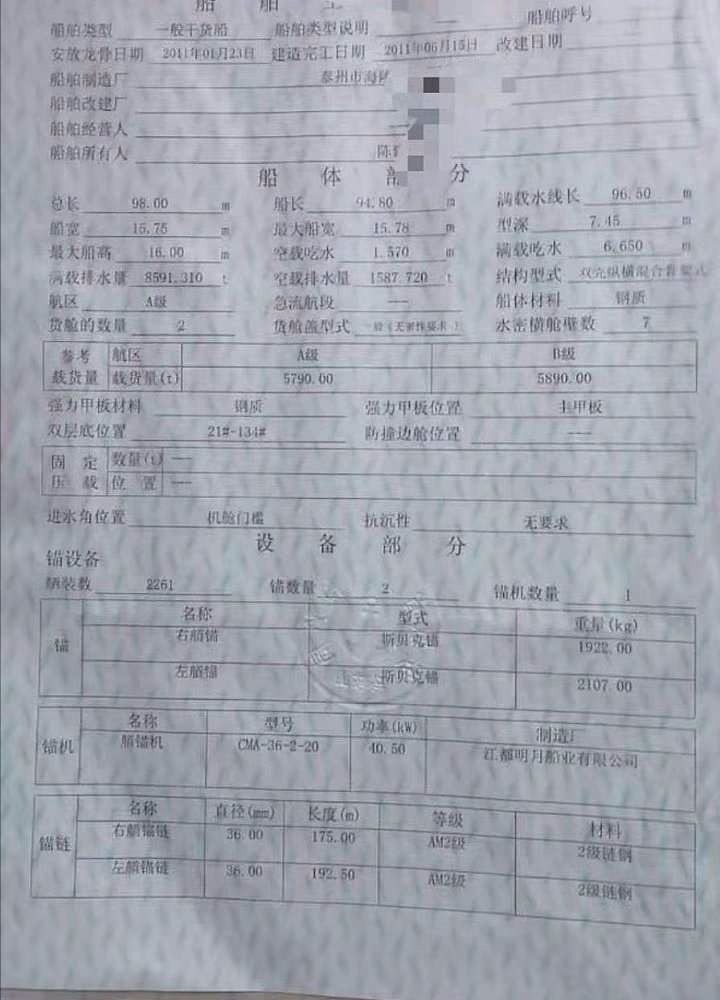 船 舶
船舶类型 一般干货船 船舶类型说明 — 船舶呼号
安放龙骨日期 2011年01月23日 建造完工日期 2011年06月15日 改建日期
船舶制造厂 泰州市海
船舶改建厂
船舶经营人
船舶所有人 陈
船 体 部 分
总长 98.00 m 船长 94.80 m 满载水线长 96.50 m
船宽 15.75 m 最大船宽 15.78 m 型深 7.45 m
最大船高 16.00 m 空载吃水 1.570 m 满载吃水 6.650 m
满载排水量 8591.310 t 空载排水量 1587.720 t 结构型式 双壳纵横混合骨架式
航区 A级 急流航段 --- 船体材料 钢质
货舱的数量 2 货舱盖型式 一般(无密性要求) 水密横舱壁数 7
参考 航区 A级 B级
载货量 载货量(t) 5790.00 5890.00
强力甲板材料 钢质 强力甲板位置 主甲板
双层底位置 21#-134# 防撞边舱位置 ---
固 定 数量(t) ---
压 载 位 置 ---
进水角位置 机舱门槛 抗沉性 无要求
设 备 部 分
锚设备
舾装数 2261 锚数量 2 锚机数量 1
名称 型式 重量(kg)
锚 右艏锚 斯贝克锚 1922.00
左艏锚 斯贝克锚 2107.00
名称 型号 功率(kW) 制造厂
锚机 艏锚机 CMA-36-2-20 40.50 江都明月船业有限公司
名称 直径(mm) 长度(m) 等级 材料
锚链 右艏锚链 36.00 175.00 AM2级 2级链钢
左艏锚链 36.00 192.50 AM2级 2级链钢